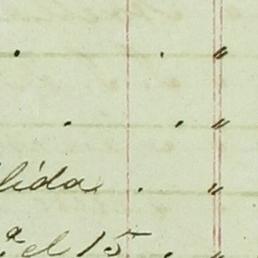 . . "
. . "
lida . "
ª el 15 . "